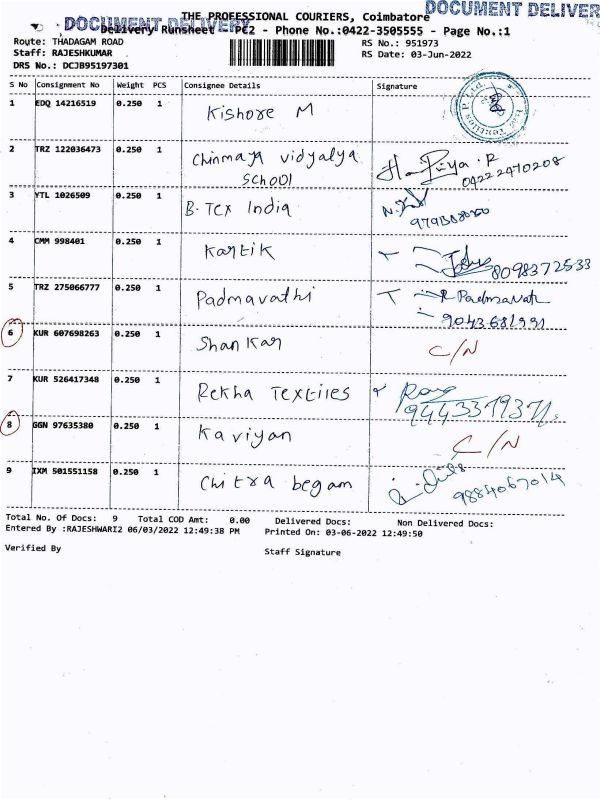 DOCUMENT DELIVER
THE PROFESSIONAL COURIERS, Coimbatore
DOCUMENT DELIVERY
Delivery Runsheet - PC2 - Phone No.:0422-3505555 - Page No.:1
Route: THADAGAM ROAD RS No.: 951973
Staff: RAJESHKUMAR RS Date: 03-Jun-2022
DRS No.: DCJB95197301
S No Consignment No Weight PCS Consignee Details Signature
1 EDQ 14216519 0.250 1 Kishore M
2 TRZ 122036473 0.250 1 Chinmaya vidyalya
School 04222470208
3 YTL 1026509 0.250 1 B. Tex India
4 CMM 998401 0.250 1 Kartik 8098372533
5 TRZ 275066777 0.250 1 Padmavathi R Padmavati
9043681991
6 KUR 607698263 0.250 1 Shankar C/N
7 KUR 526417348 0.250 1 Rekha Textiles
9443379371
8 GGN 97635380 0.250 1 Kaviyan C/N
9 IXM 501551158 0.250 1 Chitra begam 9884067014
Total No. Of Docs: 9 Total COD Amt: 0.00 Delivered Docs: Non Delivered Docs:
Entered By :RAJESHWARI2 06/03/2022 12:49:38 PM Printed On: 03-06-2022 12:49:50
Verified By Staff Signature